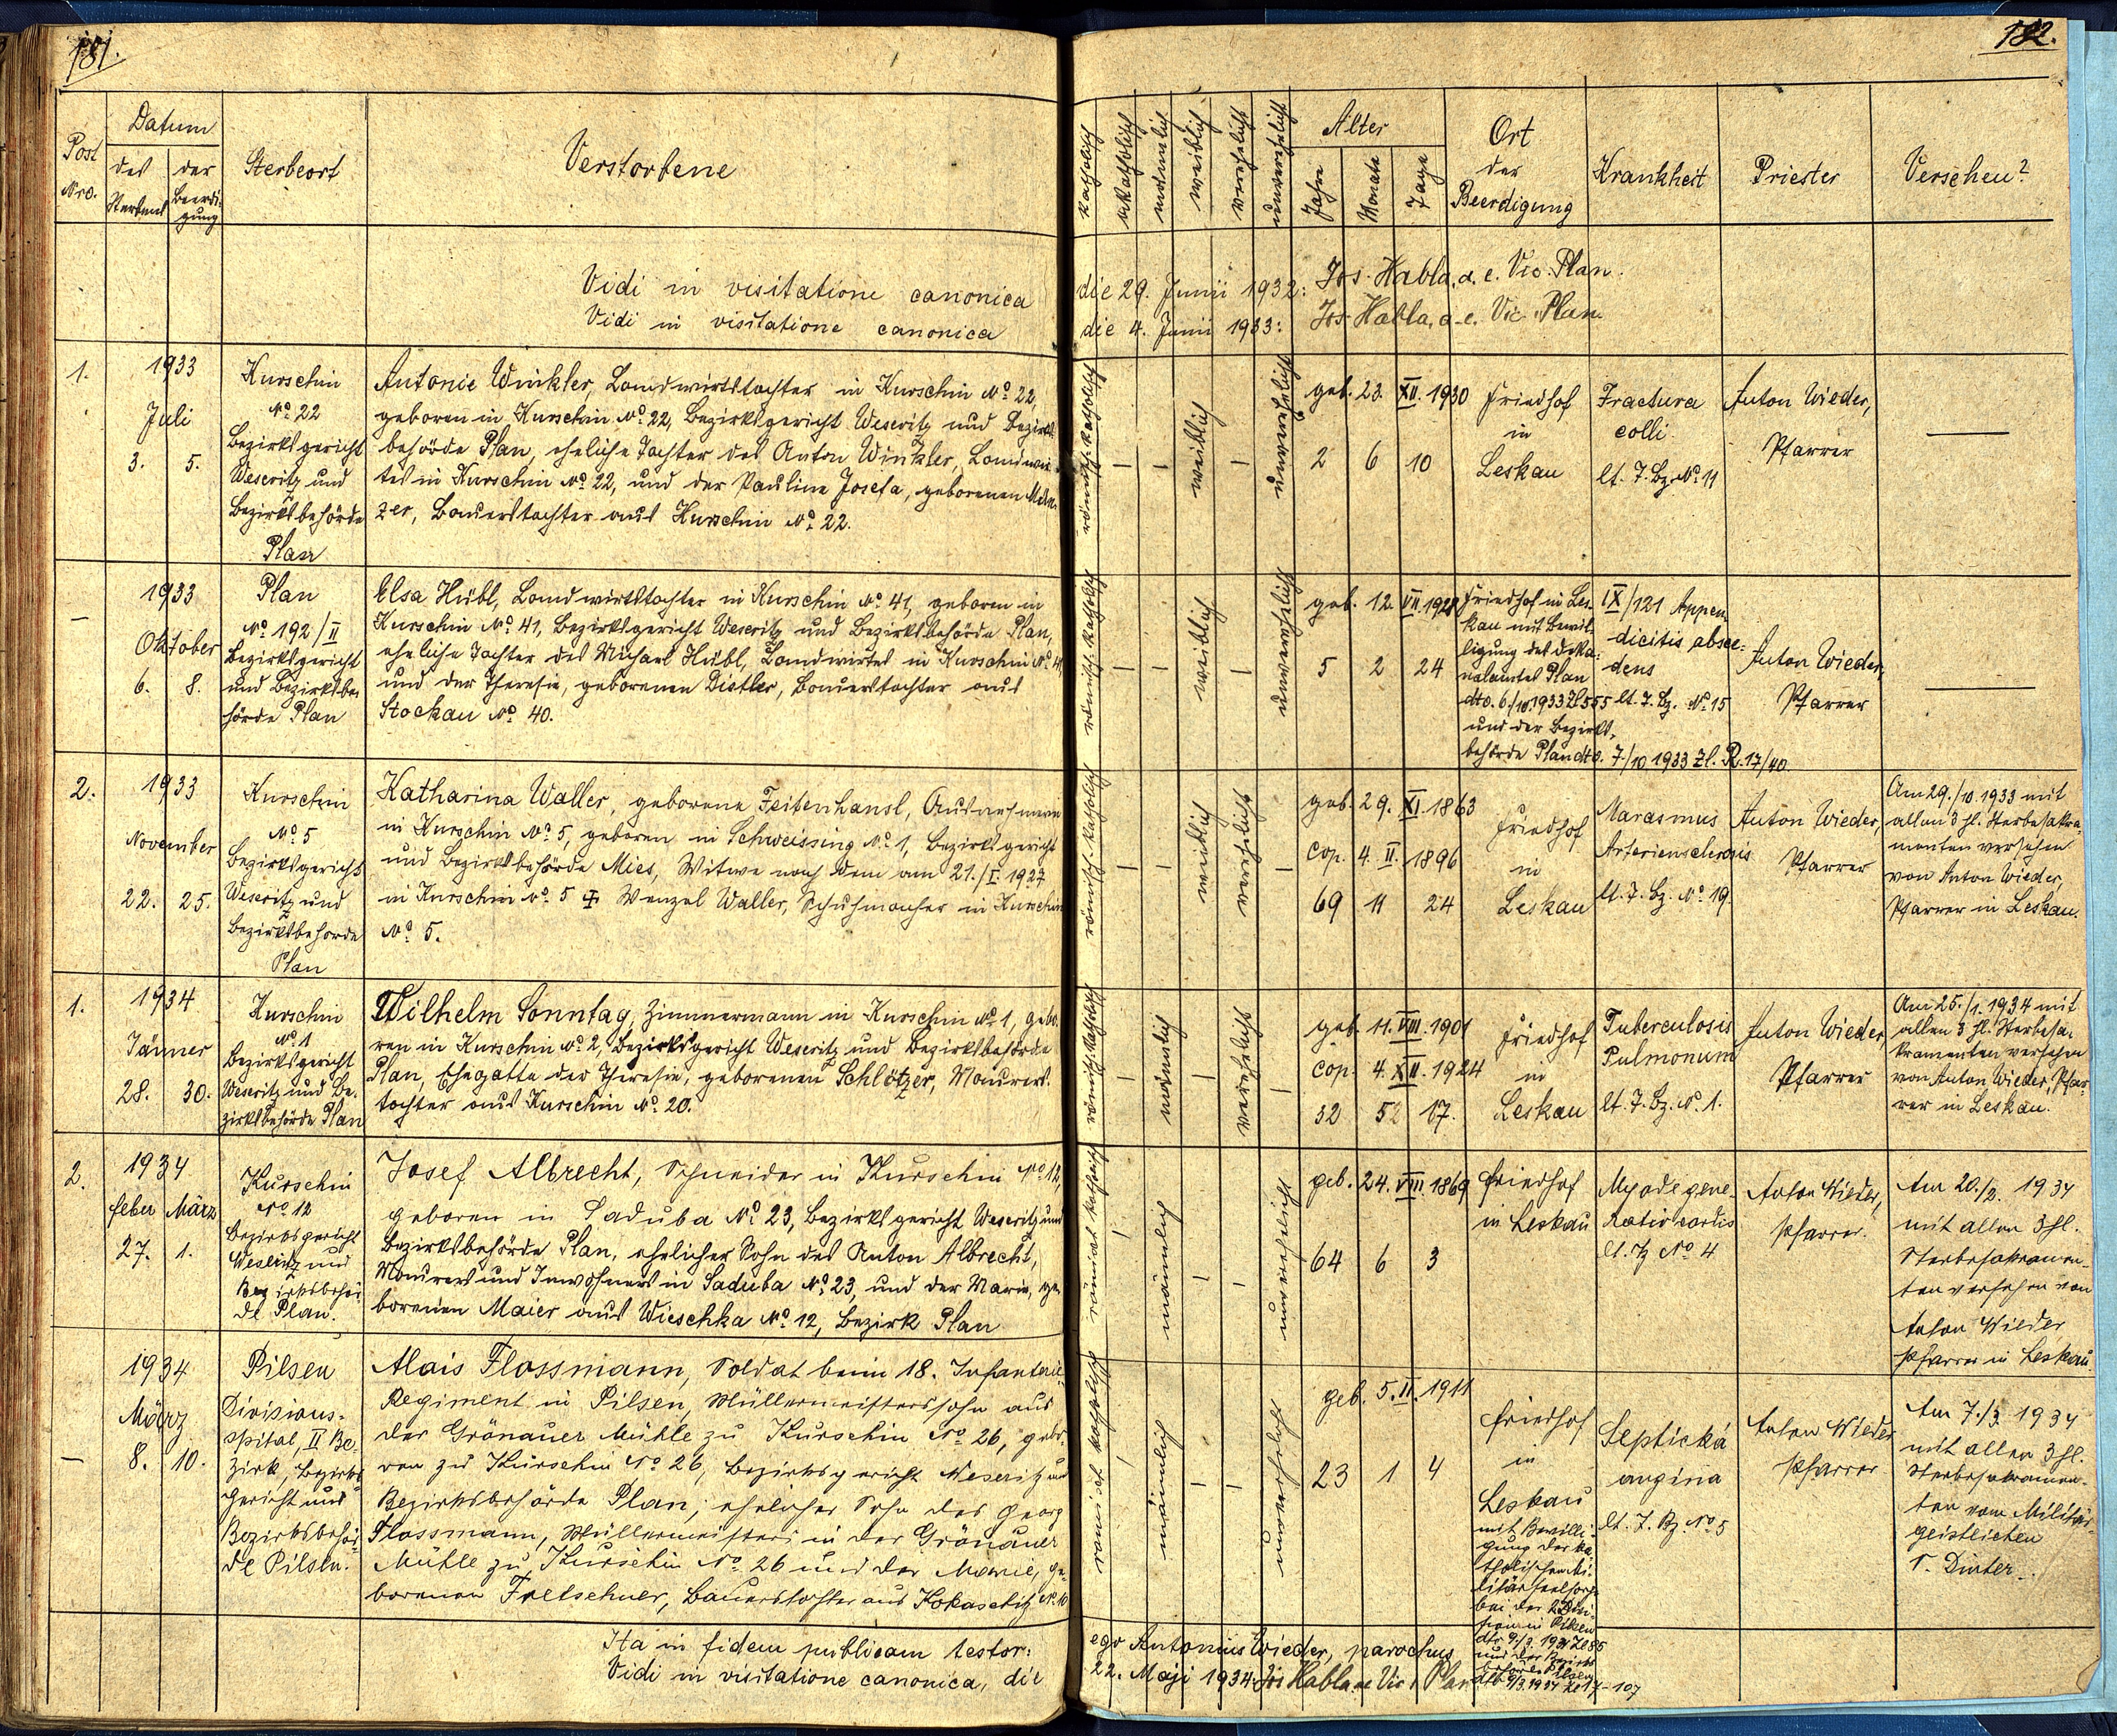 181.
182.
Post
Nro.
Datum
des
Sterbens
der
Beerdi-
gung
Sterbeort
Verstorbene
katholisch
akatholisch
männlich
weiblich
verehelicht
unverehelicht
Alter
Jahre
Monate
Tage
Ort
der
Beerdigung
Krankheit
Priester
Versehen?
Vidi in visitatione canonica die 29. Junii 1932: Jos. Habla, a. e. Vic. Plan.
Vidi in visitatione canonica die 4. Junii 1933: Jos. Habla, a. e. Vic. Plan.
1.
1933
Juli
3. 5.
Kurschin
No. 22
Bezirksgericht
Weseritz und
Bezirksbehörde
Plan
Antonie Winkler, Landwirtstochter in Kurschin No. 22,
geboren in Kurschin No. 22, Bezirksgericht Weseritz und Bezirks-
behörde Plan, eheliche Tochter des Anton Winkler, Landwir-
tes in Kurschin No. 22, und der Pauline Josefa, geborenen
zer, Bauerstochter aus Kurschin No. 22.
römisch-katholisch
–
–
weiblich
–
unverehelicht
geb. 23. XII. 1930
2 6 10
Friedhof
in
Leskau
Fractura
colli
lt. T. Bz. No. 11
Anton Wieder,
Pfarrer
—
–
1933
Oktober
6. 8.
Plan
No. 192/II
Bezirksgericht
und Bezirksbe-
hörde Plan
Elsa Hübl, Landwirtstochter in Kurschin No. 41, geboren in
Kurschin No. 41, Bezirksgericht Weseritz und Bezirksbehörde Plan,
eheliche Tochter des Michael Hübl, Landwirtes in Kurschin No. 41,
und der Theresie, geborenen Distler, Bauerstochter aus
Stockau No. 40.
römisch-katholisch
–
–
weiblich
–
unverehelicht
geb. 12. VII. 1928
5 2 24
Friedhof in Les-
kau mit Bewil-
ligung des Deka-
nalamtes Plan
dto. 6./10. 1933 Zl. 555
und der Bezirks-
behörde Plan dto. 7./10 1933 Zl. R. 17/40
IX/121 Appen-
dicitis absce-
dens
lt. T. Bz. No. 15
Anton Wieder,
Pfarrer
—
2.
1933
November
22. 25.
Kurschin
No. 5
Bezirksgericht
Weseritz und
Bezirksbehörde
Plan
Katharina Waller, geborene Feitenhansl, Ausnehmerin
in Kurschin No. 5, geboren in Schweissing No. 1, Bezirksgericht
und Bezirksbehörde Mies, Witwe nach dem am 21./I. 1927
in Kurschin No. 5 ✝ Wenzel Waller, Schuhmacher in Kurschin
No. 5.
römisch-katholisch
–
–
weiblich
verehelicht
–
geb. 29. XI. 1863
cop. 4. II. 1896
69 11 24
Friedhof
in
Leskau
Marasmus
Arteriensclerosis
lt. T. Bz. No. 19
Anton Wieder,
Pfarrer
Am 29./10. 1933 mit
allen 3 hl. Sterbesakra-
menten versehen
von Anton Wieder,
Pfarrer in Leskau.
1.
1934
Jänner
28. 30.
Kurschin
No. 1
Bezirksgericht
Weseritz und Be-
zirksbehörde Plan
Wilhelm Sonntag, Zimmermann in Kurschin No. 1, gebo-
ren in Kurschin No. 2, Bezirksgericht Weseritz und Bezirksbehörde
Plan, Ehegatte der Theresie, geborenen Schlötzer, Maurers-
tochter aus Kurschin No. 20.
römisch-katholisch
–
männlich
–
verehelicht
–
geb. 11. VIII. 1901
cop. 4. XII. 1924
32 5 17.
Friedhof
in
Leskau
Tuberculosis
Pulmonum
lt. T. Bz. No. 1.
Anton Wieder
Pfarrer
Am 25./1. 1934 mit
allen 3 hl. Sterbesa-
kramenten versehen
von Anton Wieder, Pfar-
rer in Leskau.
2.
1934
Feber März
27. 1.
Kurschin
No. 12
Bezirksgericht
Weseritz und
Bezirksbehör-
de Plan.
Josef Albrecht, Schneider in Kurschin No. 12,
geboren in Saduba No. 23, Bezirksgericht Weseritz und
Bezirksbehörde Plan, ehelicher Sohn des Anton Albrecht,
Maurers und Inwohners in Saduba No. 23, und der Marie, ge-
borenen Maier aus Wieschka No. 12, Bezirk Plan
römisch katholisch
–
männlich
–
–
unverehelicht
geb. 24. VIII. 1869
64 6 3
Friedhof
in Leskau
Myodegene-
ratio cordis
lt. Tz No. 4
Anton Wieder,
Pfarrer.
Am 20./2. 1934
mit allen 3 hl.
Sterbesakramen-
ten versehen von
Anton Wieder
Pfarrer in Leskau.
–
1934
März
8. 10.
Pilsen
Divisions-
spital, II Be-
zirk, Bezirks-
gericht und
Bezirksbehör-
de Pilsen.
Alois Flossmann, Soldat beim 18. Infanterie-
Regiment in Pilsen, Müllermeisterssohn aus
der Grönauer Mühle zu Kurschin No. 26, gebo-
ren zu Kurschin No. 26, Bezirksgericht Weseritz und
Bezirksbehörde Plan, ehelicher Sohn des Georg
Flossmann, Müllermeisters in der Grönauer
Mühle zu Kurschin No. 26 und der Marie, ge-
borenen Fretschner, Bauerstochter aus Kokaschitz No. 10
römisch katholisch
–
männlich
–
–
unverehelicht
geb. 5. II. 1911
23 1 4
Friedhof
in
Leskau
mit Bewilli-
gung der ka-
tholischen Mi-
litärseelsorge
bei der 2. Divi-
sion in Pilsen
dto 9./3. 1934 Zl 86
und der Bezirks-
behörde Pilsen
dto 9/3. 1934 Zl 17-107
Septická
angina
lt. T. Bz. No. 5
Anton Wieder
Pfarrer
Am 7./3. 1934
mit allen 3 hl.
Sterbesakramen-
ten vom Militär-
geistlichen
Dinter.
Ita in fidem publicam testor: ego Antonius Wieder, parochus
Vidi in visitatione canonica, die 22. Maji 1934. Jos Habla ae Vic. Plan